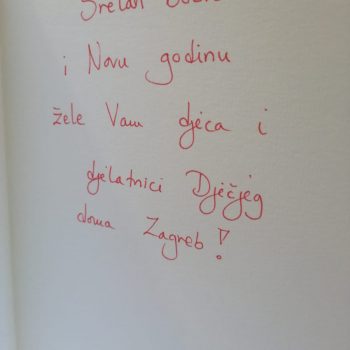 Sretan
i Novu godinu
žele Vam djeca i
djelatnici Dječjeg
doma Zagreb!